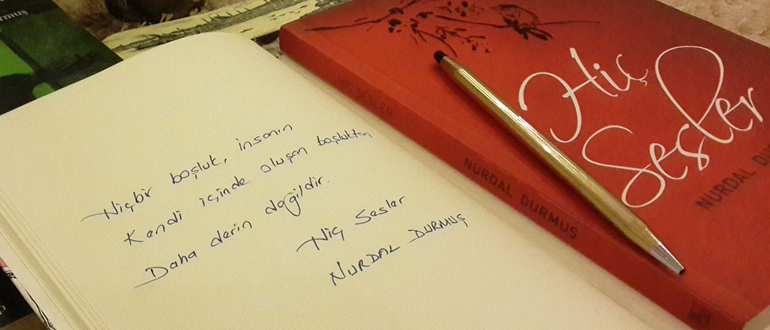 Hiçbir boşluk, insanın
Kendi içinde oluşan boşluktan
Daha derin değildir.
Hiç Sesler
NURDAL DURMUŞ
HİÇ SESLER
NURDAL DURMUŞ
Hiç
Sesler
NURDAL DURMUŞ